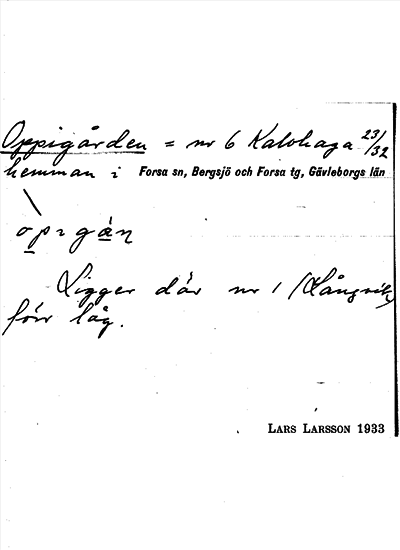 Oppigården = nr 6 Kalvhaga 23/32
hemman i Forsa sn, Bergsjö och Forsa tg, Gävleborgs län
Ligger där nr 1 (Långvik)
förr låg.
LARS LARSSON 1933